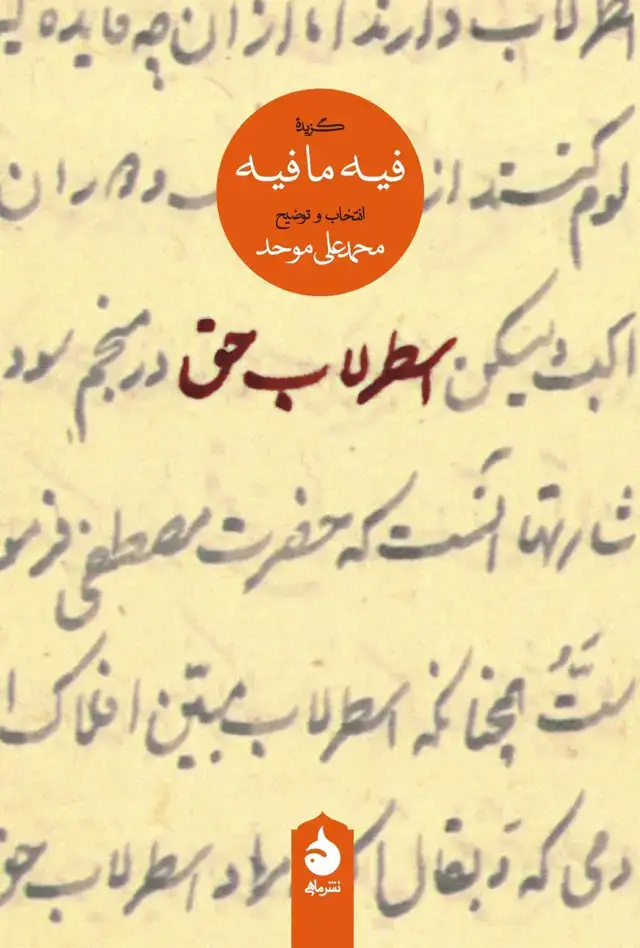 اسطرلاب دارند اما از آن چه فایده
گزیدهٔ
فیه ما فیه
انتخاب و توضیح
محمدعلی موحد
لوم کنند از و دوران
ولیکن اسطرلاب حق در منجم سود
آنست که حضرت مصطفی
همچنانکه اسطرلاب مسین افلاک
که اسطرلاب حق
نشر ماهی